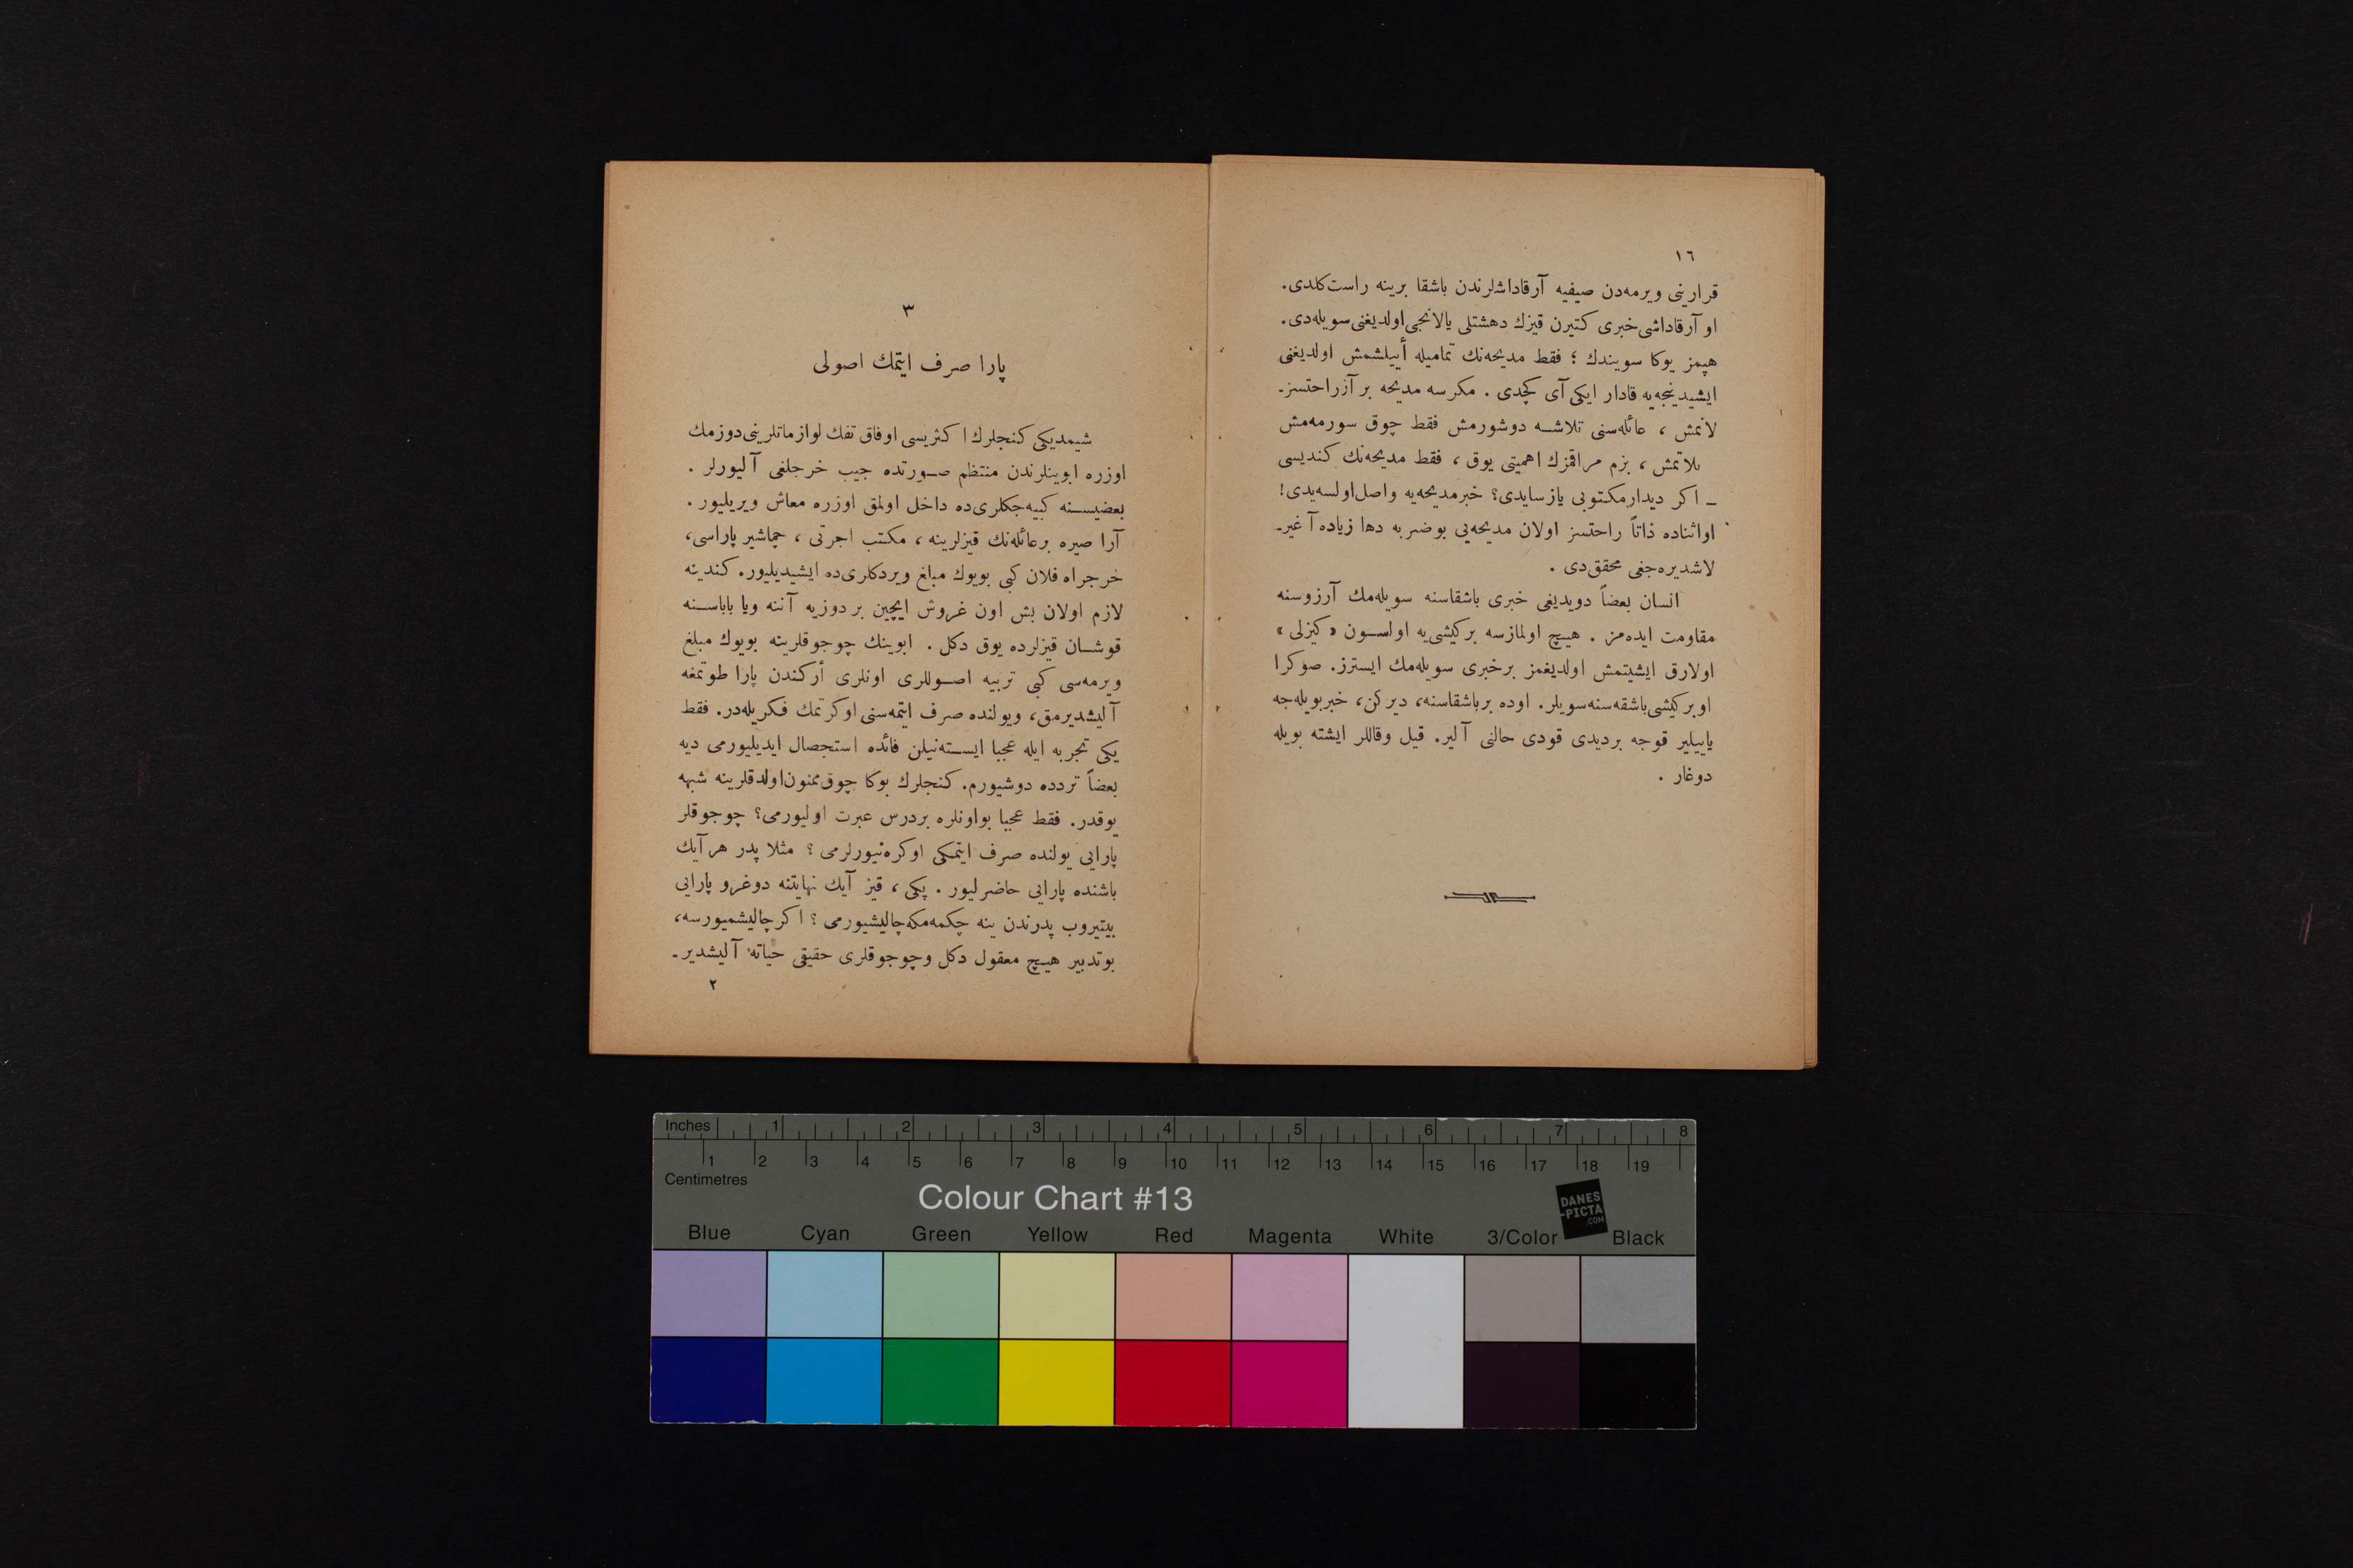 ١٦
قرارینی ویرمه‌دن صیفیه آرقاداشلرندن باشقا برینه راست کلدی.
او آرقاداشی خبری کتیرن قیزك دهشتلی یالانجی اولدیغنی سویله‌دی.
هپمز یوکا سویندك ؛ فقط مدیحه‌نك تمامیله أییلشمش اولدیغنی
ایشیدینجه‌یه قادار ایکی آی کچدی . مکرسه مدیحه بر آز راحتسز-
لانمش ، عائله‌سنی تلاشه دوشورمش فقط چوق سورمه‌مش
بزم مراقمزك اهمیتی یوق ، فقط مدیحه‌نك کندیسی
ـ اکر دیدار مکتوبی یازسایدی؟ خبر مدیحه‌یه واصل اولسه‌یدی!
اواثناده ذاتاً راحتسز اولان مدیحه‌یی بوضربه دها زیاده آغیر-
لاشدیره‌جغی محقق‌دی .
انسان بعضاً دویدیغی خبری باشقاسنه سویله‌مك آرزوسنه
مقاومت ایده‌مز . هیچ اولمازسه برکیشی‌یه اولسون «کیزلی»
اولارق ایشیتمش اولدیغمز برخبری سویله‌مك ایسترز. صوکرا
اوبرکیشی باشقه‌سنه سویلر. اوده برباشقاسنه، دیرکن، خبربویله‌جه
یاییلیر قوجه بردیدی قودی حالنی آلیر. قیل وقاللر ایشته بویله
دوغار .
٣
پارا صرف ایتمك اصولی
شیمدیکی کنجلرك اکثریسی اوفاق تفك لوازماتلرینی دوزمك
اوزره ابوینلرندن منتظم صورتده جیب خرجلغی آلیورلر .
بعضیسنه کییه‌جکلری‌ده داخل اولمق اوزره معاش ویریلیور .
آرا صیره برعائله‌نك قیزلرینه ، مکتب اجرتی ، چماشیر پاراسی،
خرجراه فلان کبی بویوك مبلغ ویردکلری‌ده ایشیدیلیور. کندینه
لازم اولان بش اون غروش ایچین بر دوزیه آننه ویا باباسنه
قوشان قیزلرده یوق دکل . ابوینك چوجوقلرینه بویوك مبلغ
ویرمه‌سی کبی تربیه اصوللری اونلری أرکندن پارا طوتمغه
آلیشدیرمق، ویولنده صرف ایتمه‌سنی اوکرتمك فکریله‌در. فقط
یکی تجربه ایله عجبا ایسته‌نیلن فائده استحصال ایدیلیورمی دیه
بعضاً تردده دوشیورم. کنجلرك بوکا چوق ممنون اولدقلرینه شبهه
یوقدر. فقط عجبا بواونلره بردرس عبرت اولیورمی؟ چوجوقلر
پارایی یولنده صرف ایتمکی اوکره‌نیورلرمی ؟ مثلا پدر هر آیك
باشنده پارایی حاضرلیور . پکی ، قیز آیك نهایتنه دوغرو پارایی
بیتیروب پدرندن ینه چکمه‌مکه چالیشیورمی ؟ اکر چالیشمیورسه،
بوتدبیر هیچ معقول دکل وچوجوقلری حقیقی حیاته آلیشدیر-
٢
Inches 1 2 3 4 5 6 7 8
1 2 3 4 5 6 7 8 9 10 11 12 13 14 15 16 17 18 19
Centimetres
Colour Chart #13
DANES
-PICTA
.COM
Blue Cyan Green Yellow Red Magenta White 3/Color Black